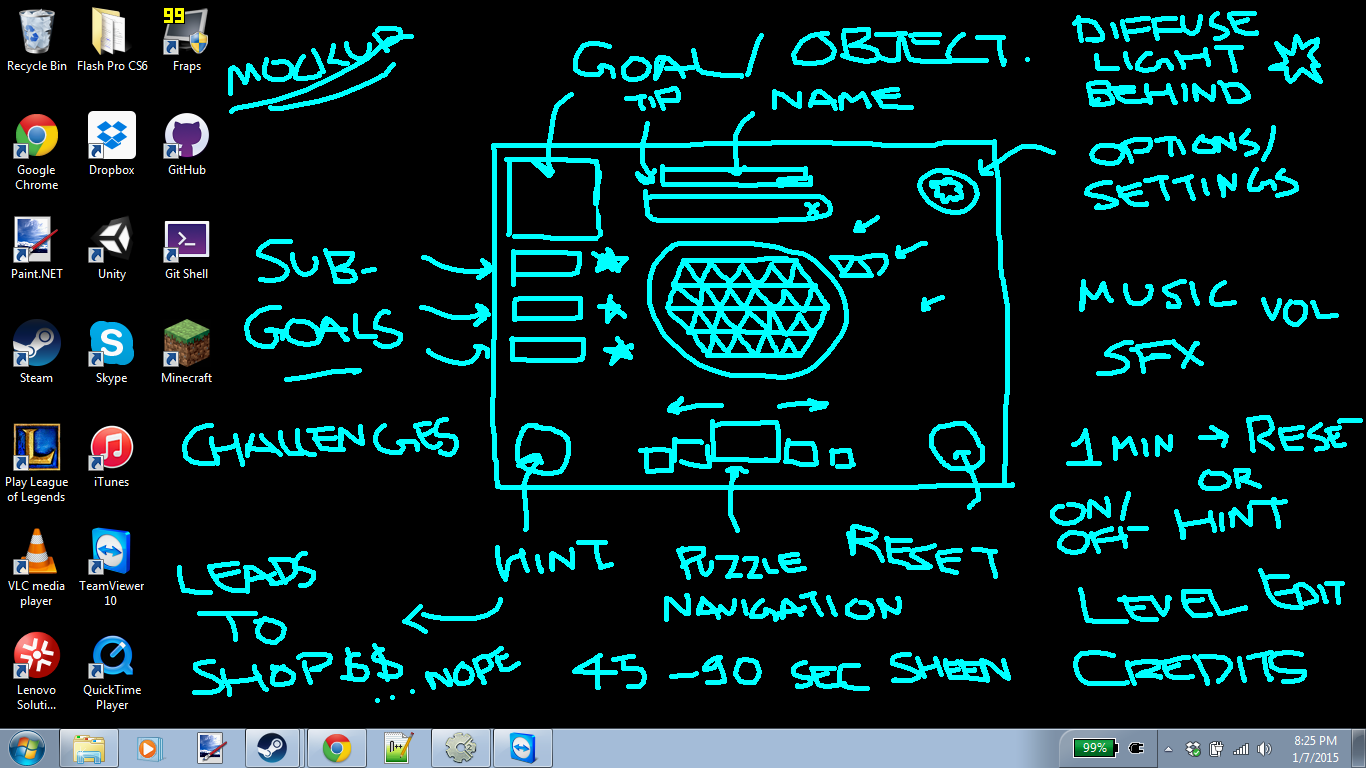 99
Recycle Bin
Flash Pro CS6
Fraps
Google
Chrome
Dropbox
GitHub
Paint.NET
Unity
Git Shell
Steam
Skype
Minecraft
Play League
of Legends
iTunes
VLC media
player
TeamViewer
10
Lenovo
Soluti...
QuickTime
Player
MOCKUP
GOAL/ OBJECT.
TIP NAME
DIFFUSE
LIGHT
BEHIND
OPTIONS/
SETTINGS
x
SUB-
GOALS
MUSIC VOL
SFX
CHALLENGES
1 MIN → RESET
OR
ON/
OFF HINT
HINT
PUZZLE
NAVIGATION
RESET
LEADS
TO
SHOP $$ ... NOPE
45 - 90 SEC SHEEN
LEVEL EDIT
CREDITS
n++
99%
8:25 PM
1/7/2015